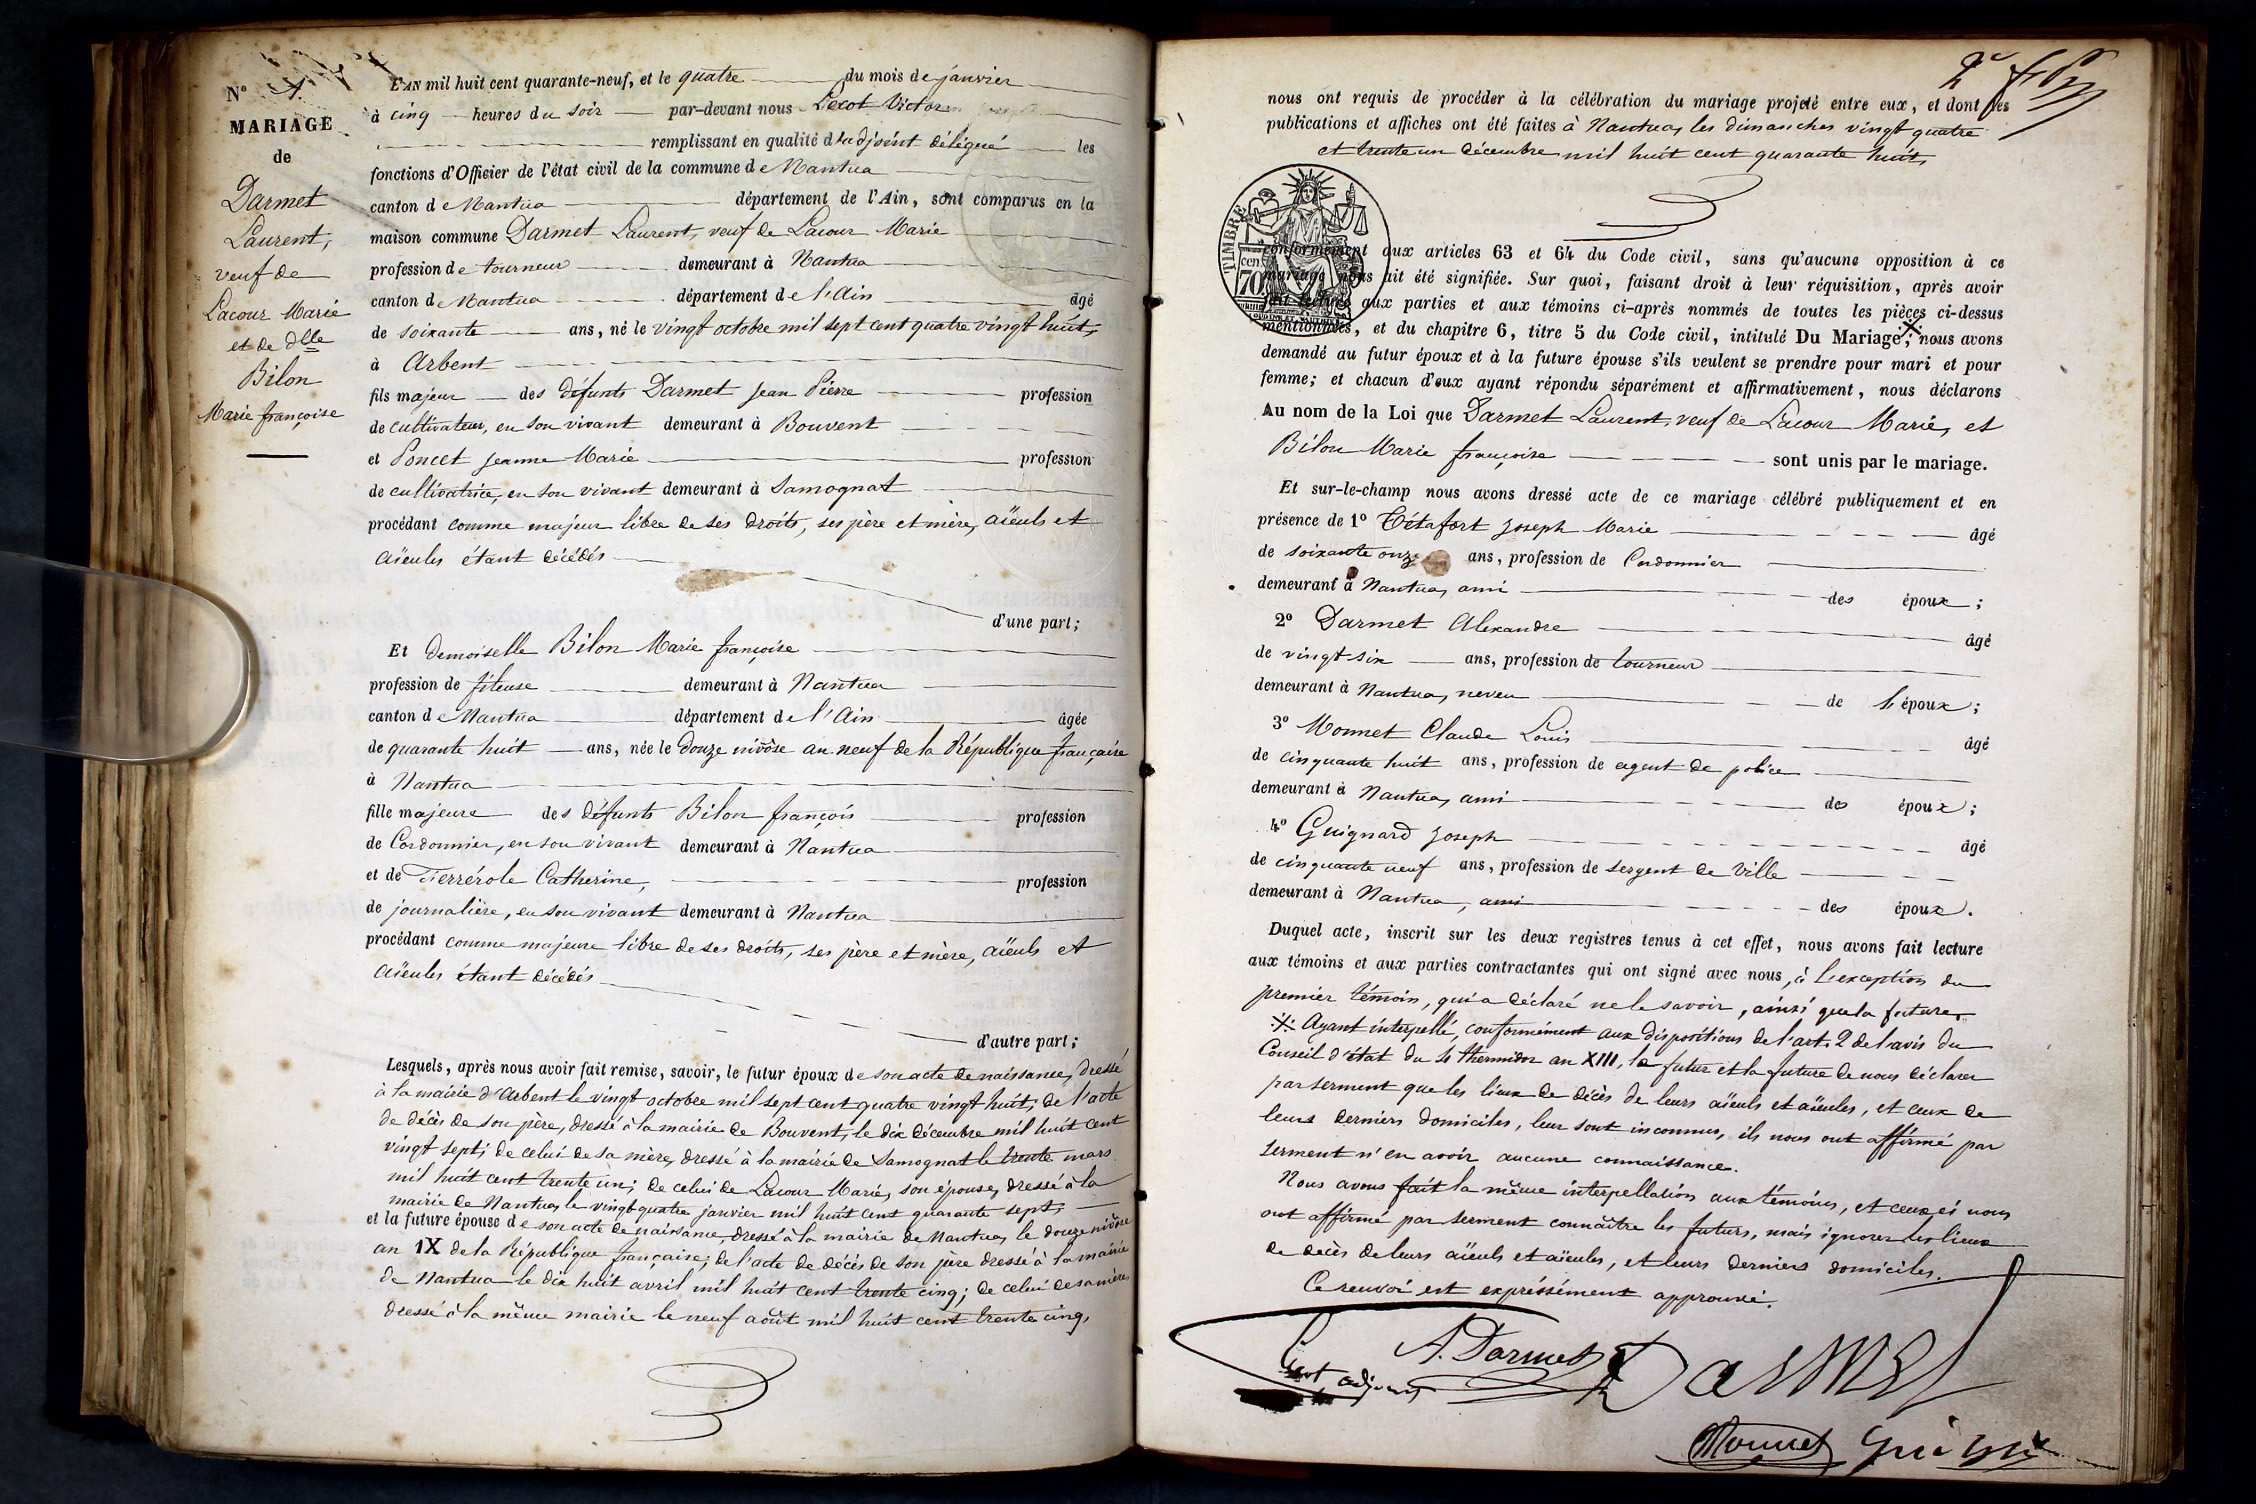 N° 1
MARIAGE
de
Darmet
Laurent,
veuf de
Lacour Marie
et de dlle
Bilon
Marie françoise
L'AN mil huit cent quarante-neuf, et le quatre du mois de janvier
à cinq heures du soir par-devant nous Lecot Victor
remplissant en qualité d'adjoint délégué les
fonctions d'Officier de l'état civil de la commune de Nantua
canton de Nantua département de l'Ain, sont comparus en la
maison commune Darmet Laurent, veuf de Lacour Marie
profession de tourneur demeurant à Nantua
canton de Nantua département de l'Ain âgé
de soixante ans, né le vingt octobre mil sept cent quatre vingt huit,
à Arbent
fils majeur des défunts Darmet Jean Pierre profession
de cultivateur, en son vivant demeurant à Bouvent
et Poncet Jeanne Marie profession
de cultivatrice, en son vivant demeurant à Samognat
procédant comme majeur libre de ses droits, ses père et mère, aïeuls et
aïeules étant décédés
d'une part;
Et demoiselle Bilon Marie françoise
profession de fileuse demeurant à Nantua
canton de Nantua département de l'Ain âgée
de quarante huit ans, née le douze nivôse an neuf de la République française
à Nantua
fille majeure des défunts Bilon françois profession
de Cordonnier, en son vivant demeurant à Nantua
et de Ferrérole Catherine, profession
de journalière, en son vivant demeurant à Nantua
procédant comme majeure libre de ses droits, ses père et mère, aïeuls et
aïeules étant décédés
d'autre part;
Lesquels, après nous avoir fait remise, savoir, le futur époux de son acte de naissance, dressé
à la mairie d'Arbent le vingt octobre mil sept cent quatre vingt huit; de l'acte
de décès de son père, dressé à la mairie de Bouvent, le dix décembre mil huit cent
vingt sept; de celui de sa mère, dressé à la mairie de Samognat le trente mars
mil huit cent trente un; de celui de Lacour Marie, son épouse, dressé à la
mairie de Nantua, le vingt quatre janvier mil huit cent quarante sept;
et la future épouse de son acte de naissance, dressé à la mairie de Nantua, le douze nivôse
an IX de la République française; de l'acte de décès de son père dressé à la mairie
de Nantua le dix huit avril mil huit cent trente cinq; de celui de sa mère
dressé à la même mairie le neuf août mil huit cent trente cinq,
2e
nous ont requis de procéder à la célébration du mariage projeté entre eux, et dont les
publications et affiches ont été faites à Nantua, les dimanches vingt quatre
et trente un décembre mil huit cent quarante huit,
TIMBRE
70 cen
conformément aux articles 63 et 64 du Code civil, sans qu'aucune opposition à ce
mariage nous ait été signifiée. Sur quoi, faisant droit à leur réquisition, après avoir
fait lecture aux parties et aux témoins ci-après nommés de toutes les pièces ci-dessus
mentionnées, et du chapitre 6, titre 5 du Code civil, intitulé Du Mariage; nous avons
demandé au futur époux et à la future épouse s'ils veulent se prendre pour mari et pour
femme; et chacun d'eux ayant répondu séparément et affirmativement, nous déclarons
Au nom de la Loi que Darmet Laurent, veuf de Lacour Marie, et
Bilon Marie françoise sont unis par le mariage.
Et sur-le-champ nous avons dressé acte de ce mariage célébré publiquement et en
présence de 1° Tétafort Joseph Marie âgé
de soixante onze ans, profession de Cordonnier
demeurant à Nantua, ami des époux;
2° Darmet Alexandre âgé
de vingt six ans, profession de tourneur
demeurant à Nantua, neveu de l'époux;
3° Monnet Claude Louis âgé
de cinquante huit ans, profession de agent de police
demeurant à Nantua, ami des époux;
4° Guignard Joseph âgé
de cinquante neuf ans, profession de sergent de ville
demeurant à Nantua, ami des époux.
Duquel acte, inscrit sur les deux registres tenus à cet effet, nous avons fait lecture
aux témoins et aux parties contractantes qui ont signé avec nous, à l'exception du
premier témoin, qui a déclaré ne le savoir, ainsi que la future.
Ayant interpellé, conformément aux dispositions de l'art. 2 de l'avis du
Conseil d'état du 4 thermidor an XIII, le futur et la future de nous déclarer
par serment que les lieux de décès de leurs aïeuls et aïeules, et ceux de
leurs derniers domiciles, leur sont inconnus, ils nous ont affirmé par
serment n'en avoir aucune connaissance.
Nous avons fait la même interpellation aux témoins, et ceux-ci nous
ont affirmé par serment connaître les futurs, mais ignorer les lieux
de décès de leurs aïeuls et aïeules, et leurs derniers domiciles.
Ce renvoi est expréssément approuvé.
A. Darmet Darmet
Lecot, adjoint
Monnet